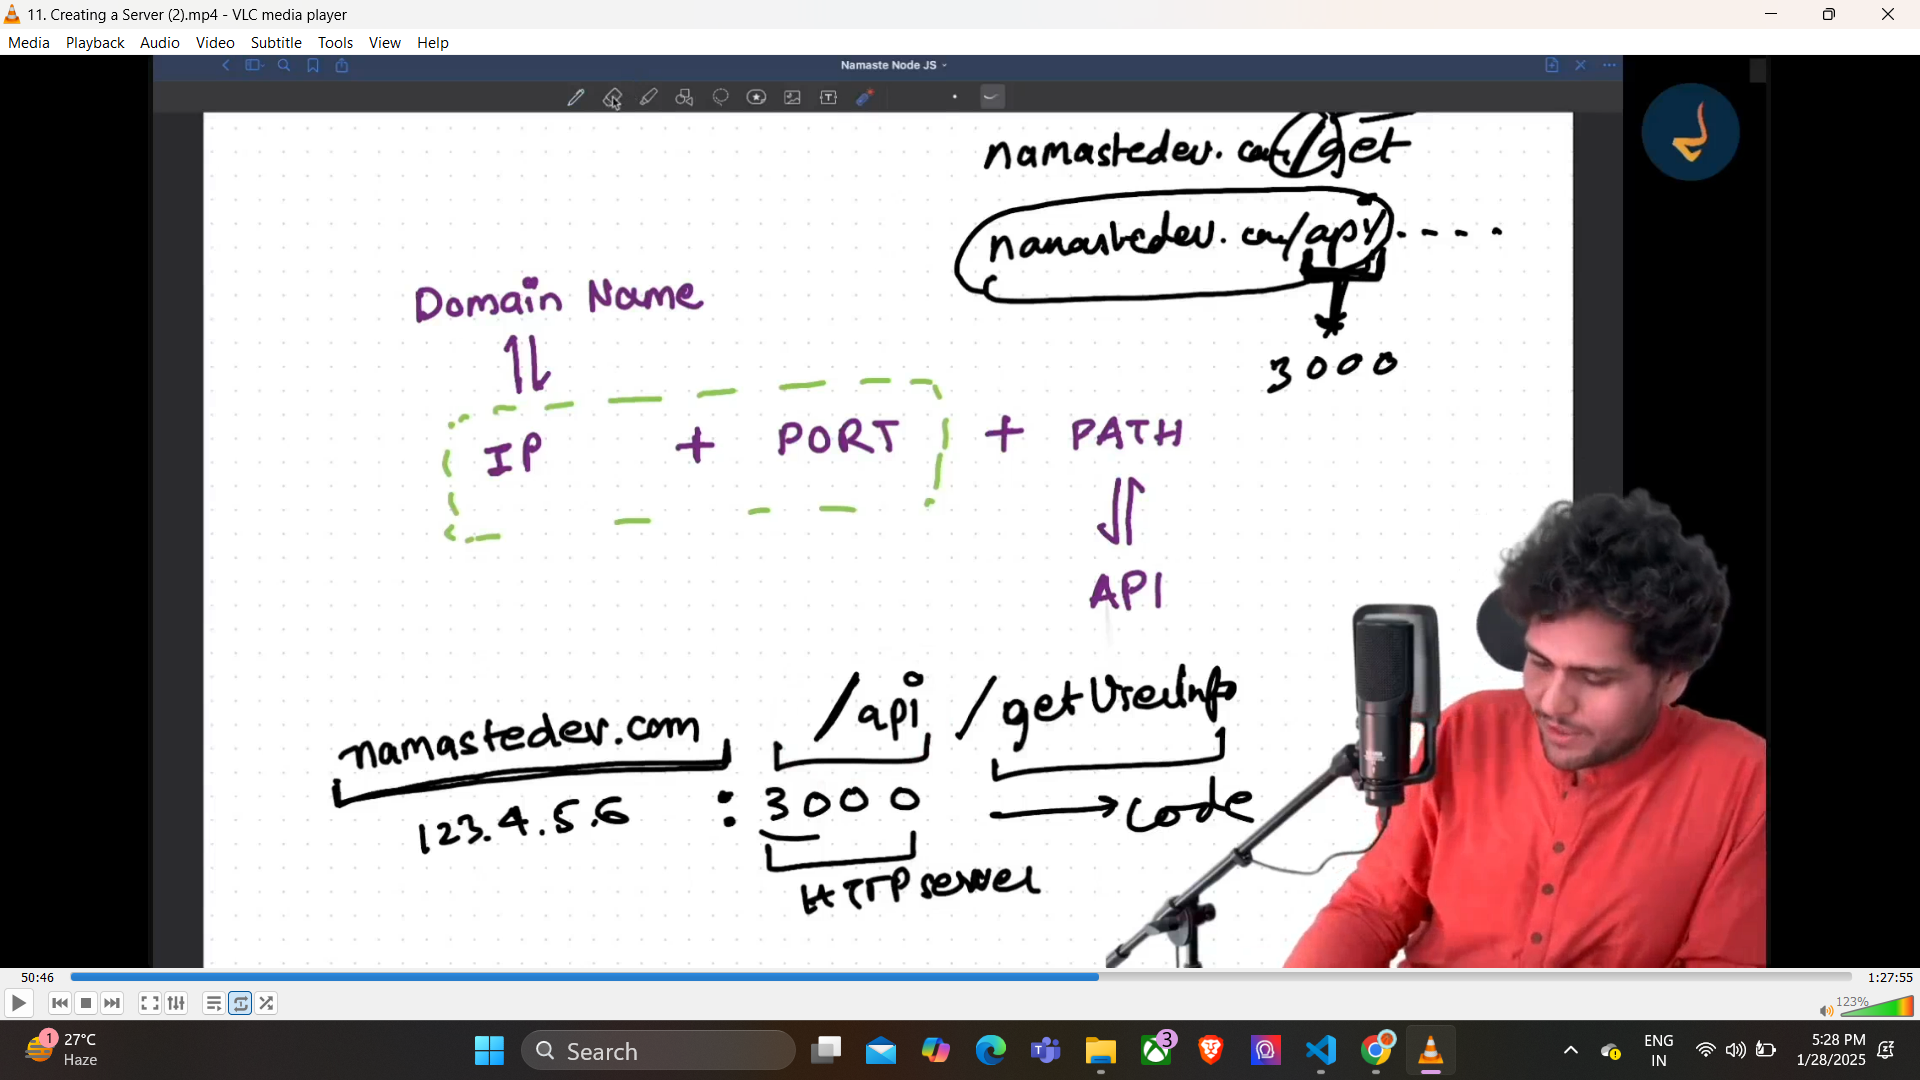 11. Creating a Server (2).mp4 - VLC media player
Media Playback Audio Video Subtitle Tools View Help
Namaste Node JS
namastedev.com/get
namastedev.com/api/----
3000
Domain Name
IP + PORT + PATH
API
namastedev.com /api /getUserInfo
123.4.5.6 : 3000 → code
HTTP server
50:46
1:27:55
123%
1
27°C
Haze
Search
3
ENG
IN
5:28 PM
1/28/2025